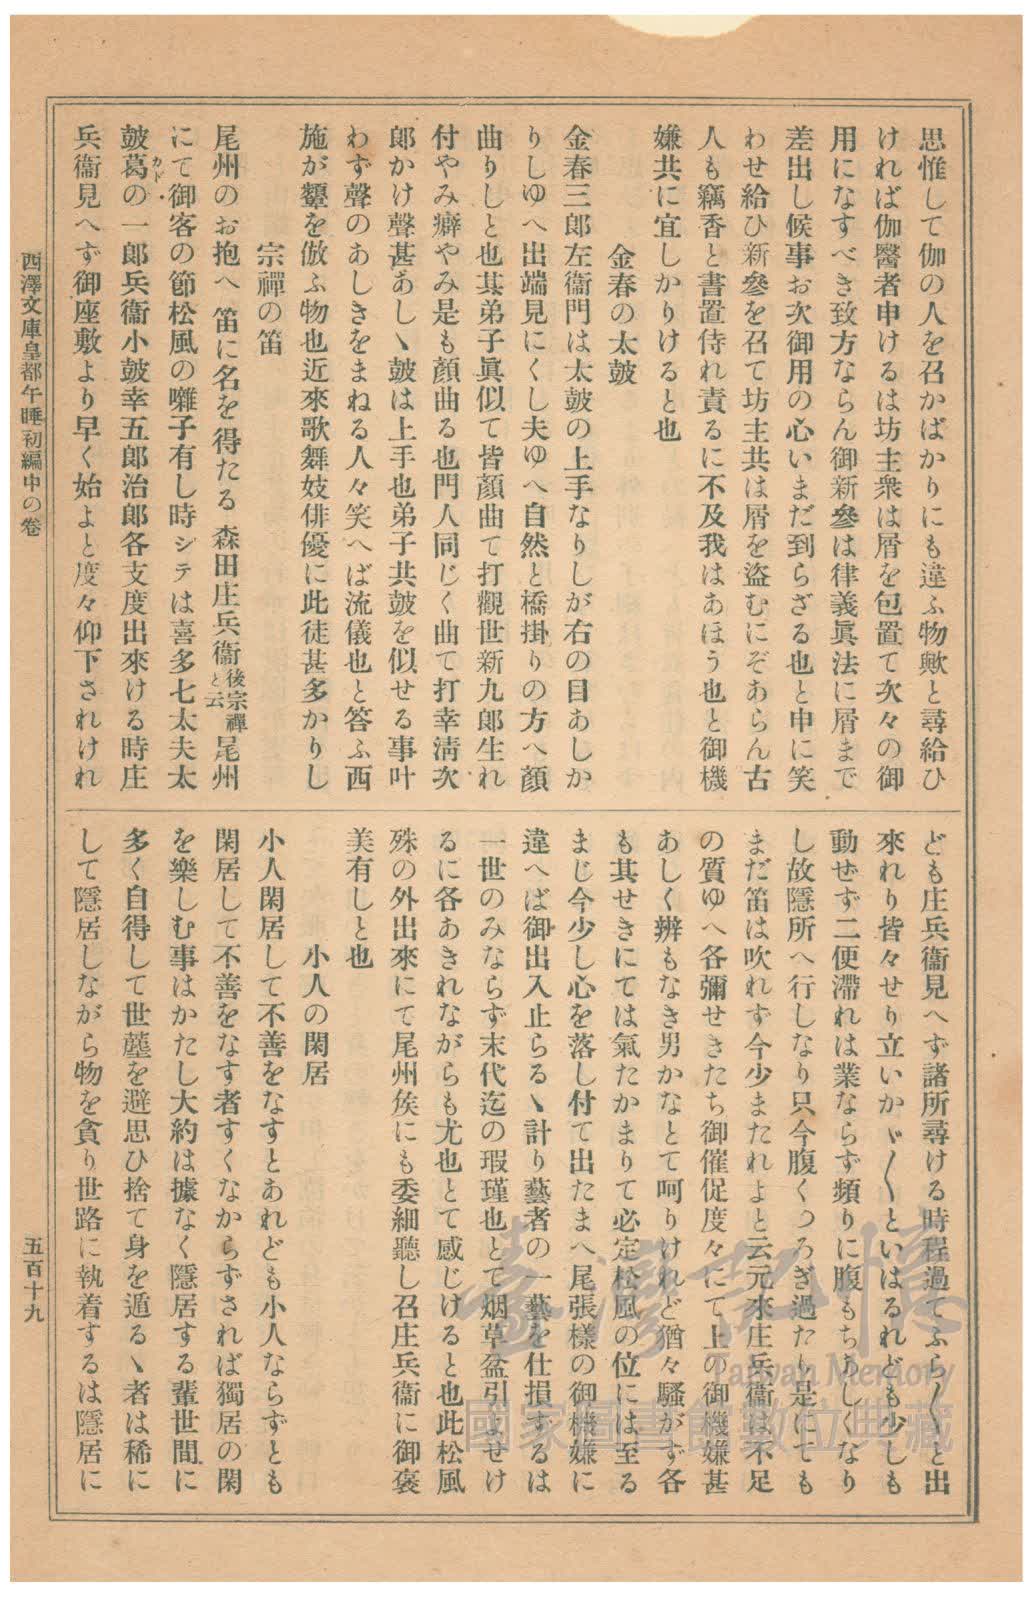 思惟して伽の人を召かばかりにも違ふ物歟と尋給ひ
ければ伽醫者申けるは坊主衆は屑を包置て次々の御
用になすべき致方ならん御新參は律義眞法に屑まで
差出し候事お次御用の心いまだ到らざる也と申に笑
わせ給ひ新參を召て坊主共は屑を盜むにぞあらん古
人も竊香と書置侍れ責るに不及我はあほう也と御機
嫌共に宜しかりけると也
金春の太皷
金春三郎左衞門は太皷の上手なりしが右の目あしか
りしゆへ出端見にくし夫ゆへ自然と橋掛りの方へ顏
曲りしと也其弟子眞似て皆顏曲て打觀世新九郎生れ
付やみ癖やみ是も顏曲る也門人同じく曲て打幸淸次
郎かけ聲甚あしゝ皷は上手也弟子共皷を似せる事叶
わず聲のあしきをまねる人々笑へば流儀也と答ふ西
施が顰を倣ふ物也近來歌舞妓俳優に此徒甚多かりし
宗禪の笛
尾州のお抱へ笛に名を得たる森田庄兵衞後宗禪と云尾州
にて御客の節松風の囃子有し時シテは喜多七太夫太
皷葛カドの一郎兵衞小皷幸五郎治郎各支度出來ける時庄
兵衞見へず御座敷より早く始よと度々仰下されけれ
ども庄兵衞見へず諸所尋ける時程過てふら〳〵と出
來れり皆々せり立いかゞ〳〵といはるれども少しも
動せず二便滯れは業ならず頻りに腹もちあしくなり
し故隱所へ行しなり只今腹くつろぎ過たり是にても
まだ笛は吹れず今少またれよと云元來庄兵衞は不足
の質ゆへ各彌せきたち御催促度々にて上の御機嫌甚
あしく辨もなき男かなとて呵りけれど猶々騷がず各
も其せきにては氣たかまりて必定松風の位には至る
まじ今少し心を落し付て出たまへ尾張樣の御機嫌に
違へば御出入止らるゝ計り藝者の一藝を仕損するは
一世のみならず末代迄の瑕瑾也とて烟草盆引よせけ
るに各あきれながらも尤也とて感じけると也此松風
殊の外出來にて尾州矦にも委細聽し召庄兵衞に御褒
美有しと也
小人の閑居
小人閑居して不善をなすとあれども小人ならずとも
閑居して不善をなす者すくなからずされば獨居の閑
を樂しむ事はかたし大約は據なく隱居する輩世間に
多く自得して世塵を避思ひ捨て身を遁るゝ者は稀に
して隱居しながら物を貪り世路に執着するは隱居に
西澤文庫皇都午睡初編中の卷
五百十九
臺灣記憶
Taiwan Memory
國家圖書館數位典藏